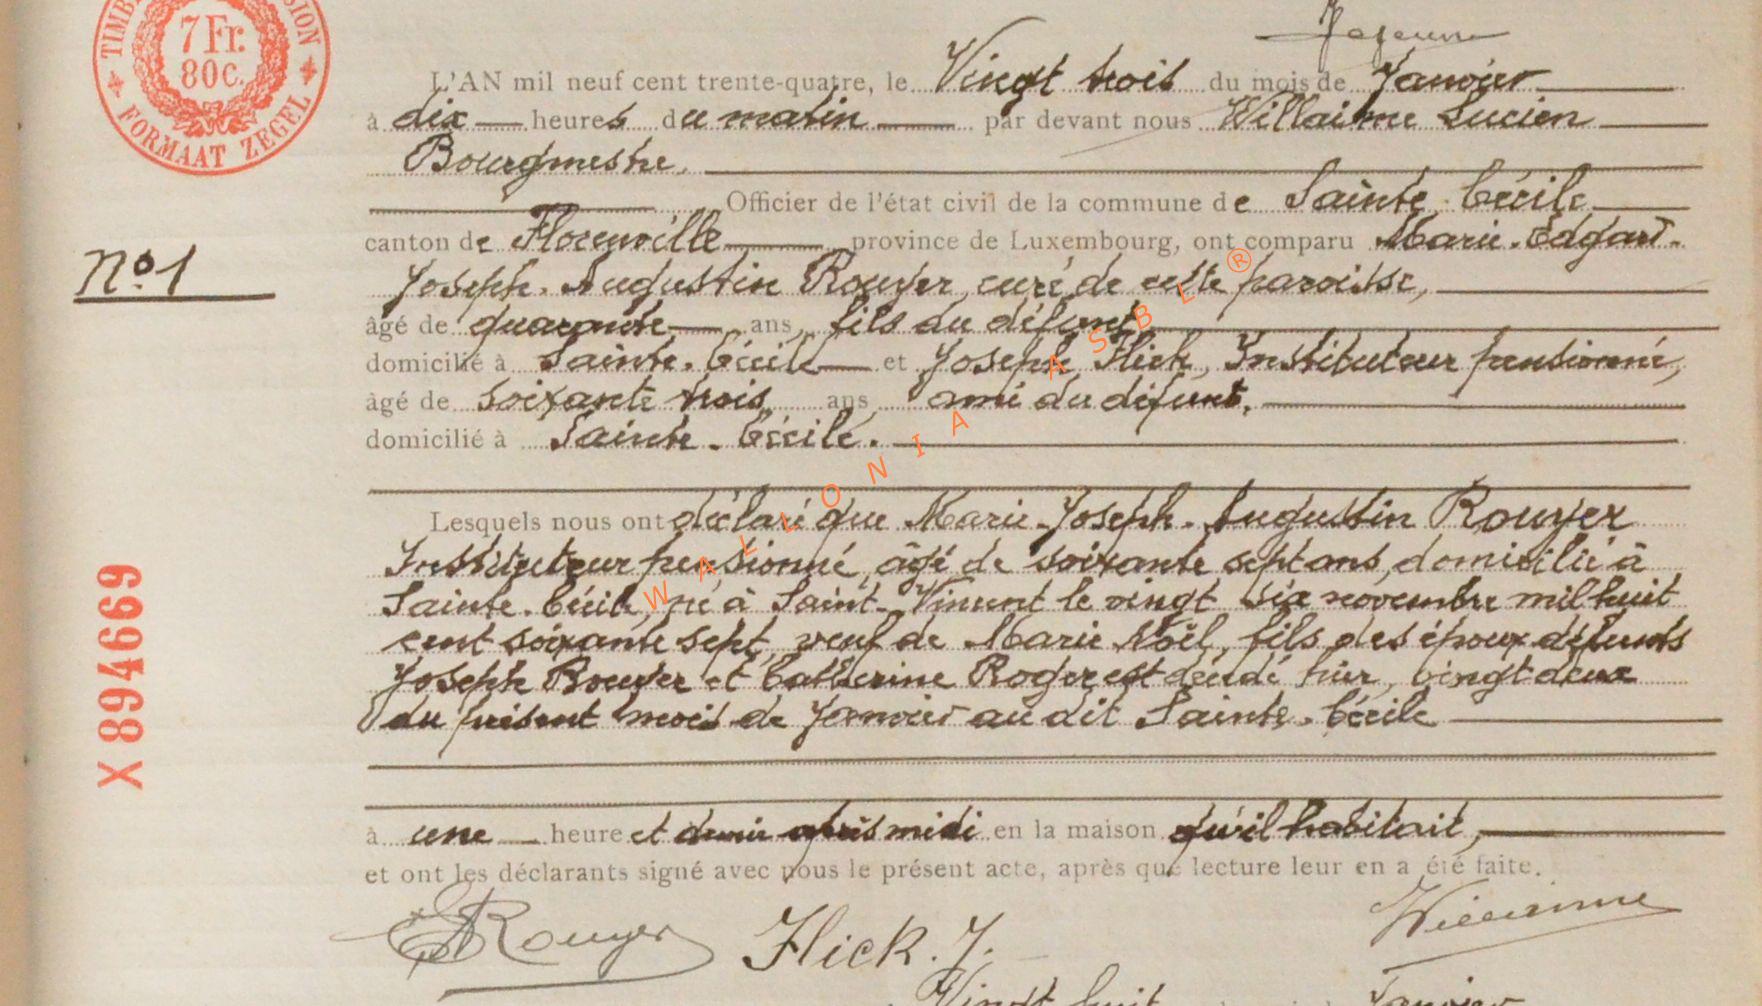 TIMB SION
7 Fr.
80 C.
FORMAAT ZEGEL
Lejeune
L'AN mil neuf cent trente-quatre, le Vingt trois du mois de Janvier
à dix heures du matin par devant nous Willaime Lucien
Bourgmestre.
Officier de l'état civil de la commune de Sainte-Cécile
canton de Florenville province de Luxembourg, ont comparu Marie-Edgard-
Joseph-Augustin Rouyer, curé de cette paroisse,
âgé de quarante ans, fils du défunt,
domicilié à Sainte-Cécile et Joseph Flick, Instituteur pensionné,
âgé de soixante trois ans, ami du défunt,
domicilié à Sainte-Cécile.
Lesquels nous ont déclaré que Marie-Joseph-Augustin Rouyer
Instituteur pensionné, âgé de soixante sept ans, domicilié à
Sainte-Cécile, né à Saint-Vincent le vingt six novembre mil huit
cent soixante sept, veuf de Marie Noël, fils des époux défunts
Joseph Rouyer et Catherine Roger est décédé hier, vingt deux
du présent mois de Janvier au dit Sainte-Cécile
à une heure et demie après midi en la maison qu'il habitait,
et ont les déclarants signé avec nous le présent acte, après que lecture leur en a été faite.
N° 1
X 894669
WALLONIA ASBL ®
E Rouyer Flick. J. Willaime
Vingt huit Janvier